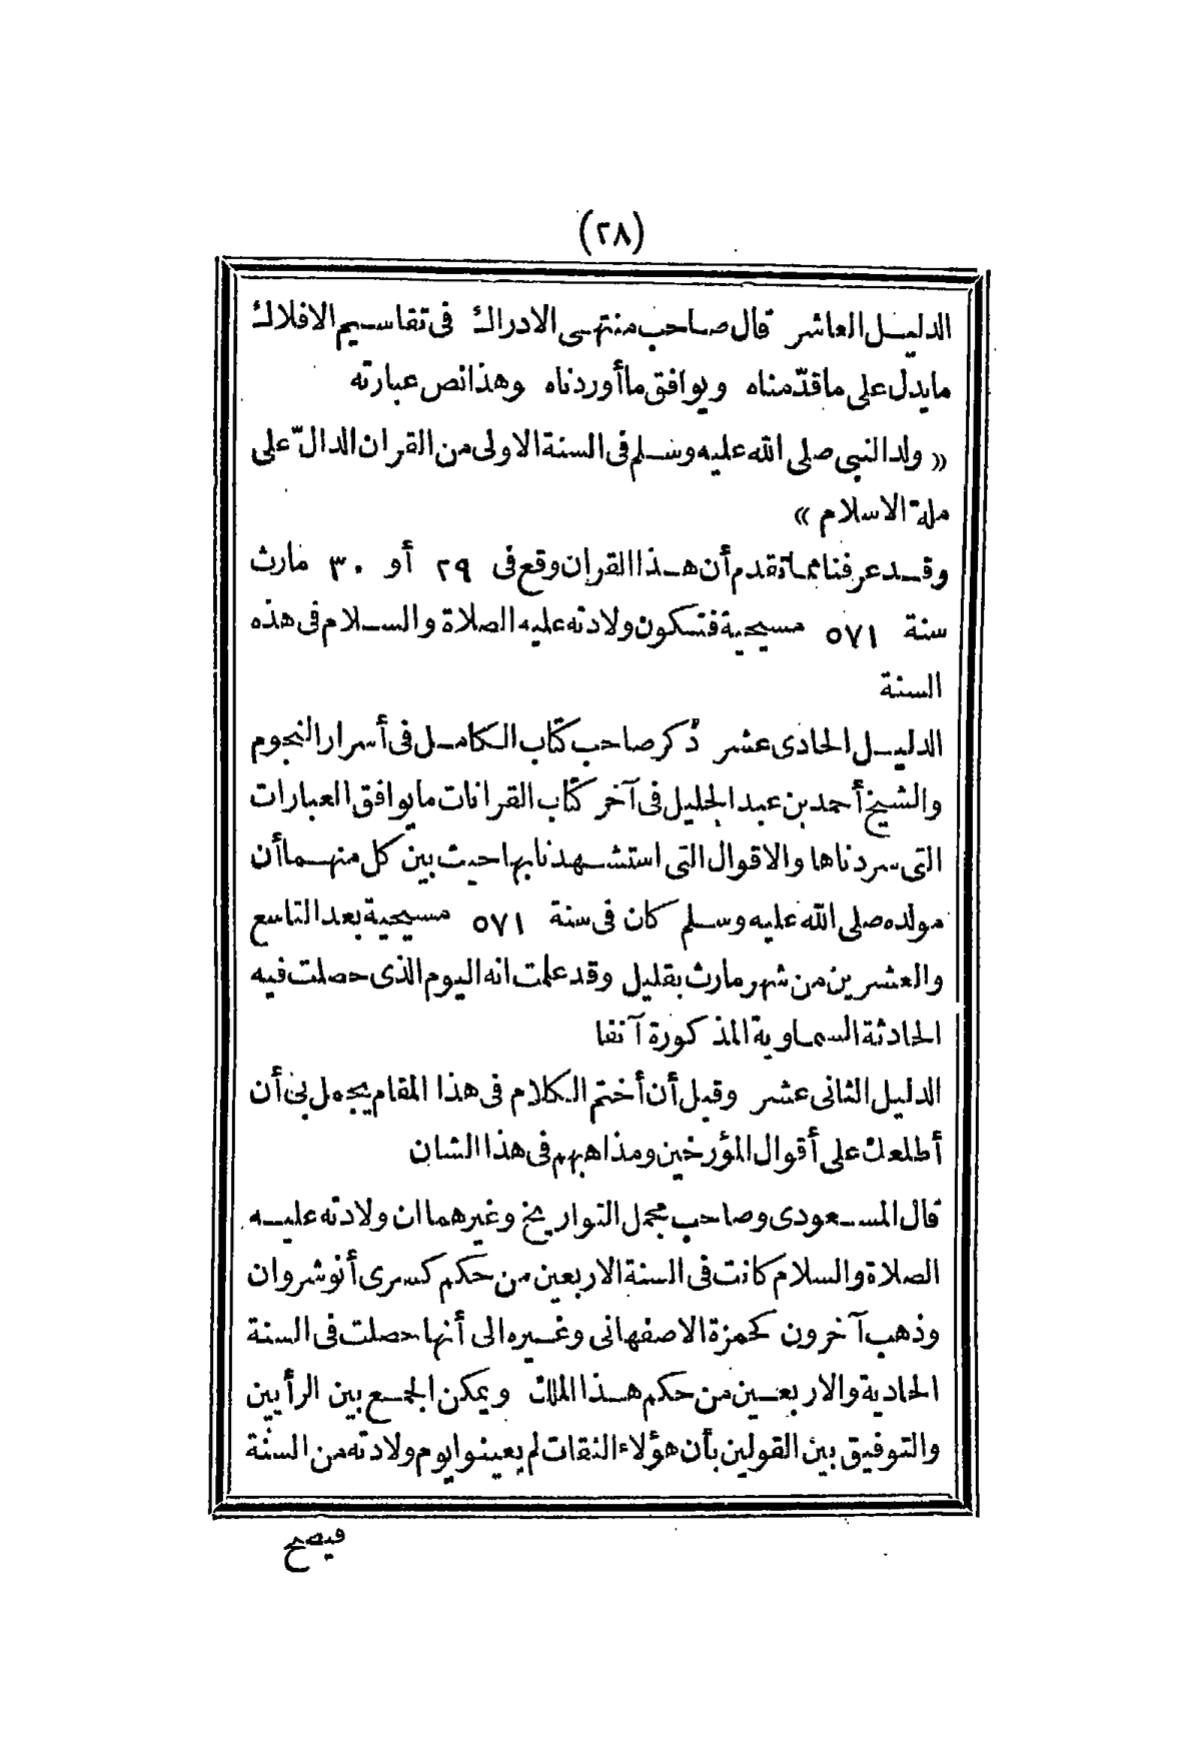 (٢٨)
الدليل العاشر قال صاحب منتهى الادراك فى تقاسيم الافلاك
مايدل على ماقدّمناه ويوافق ماأوردناه وهذا نص عبارته
« ولد النبى صلى الله عليه وسلم فى السنة الاولى من القران الدالّ على
ملة الاسلام »
وقد عرفنا مما تقدم أن هذا القران وقع فى ٢٩ أو ٣٠ مارث
سنة ٥٧١ مسيحية فتكون ولادته عليه الصلاة والسلام فى هذه
السنة
الدليل الحادى عشر ذكر صاحب كتاب الكامل فى أسرار النجوم
والشيخ أحمد بن عبد الجليل فى آخر كتاب القرانات مايوافق العبارات
التى سردناها والاقوال التى استشهدنا بها حيث بين كل منهما أن
مولده صلى الله عليه وسلم كان فى سنة ٥٧١ مسيحية بعد التاسع
والعشرين من شهر مارث بقليل وقد علمت انه اليوم الذى حصلت فيه
الحادثة السماوية المذكورة آنفا
الدليل الثانى عشر وقبل أن أختم الكلام فى هذا المقام يجمل بى أن
أطلعك على أقوال المؤرخين ومذاهبهم فى هذا الشان
قال المسعودى وصاحب مجمل التواريخ وغيرهما ان ولادته عليه
الصلاة والسلام كانت فى السنة الاربعين من حكم كسرى أنوشروان
وذهب آخرون كحمزة الاصفهانى وغيره الى أنها حصلت فى السنة
الحادية والاربعين من حكم هذا الملك ويمكن الجمع بين الرأيين
والتوفيق بين القولين بأن هؤلاء الثقات لم يعينوا يوم ولادته من السنة
فيصح